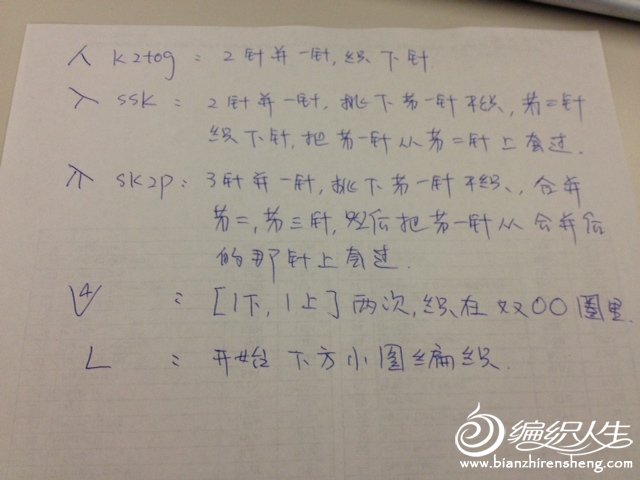 人 k2tog : 2针并一针,织下针
入 ssk : 2针并一针,挑下第一针不织,第二针
织下针,把第一针从第二针上套过.
sk2p: 3针并一针,挑下第一针不织,合并
第二,第三针,然后把第一针从合并后
的那针上套过.
4
V : [1下,1上]两次,织在双OO圈里.
L : 开始下方小图编织.
编织人生
www.bianzhirensheng.com